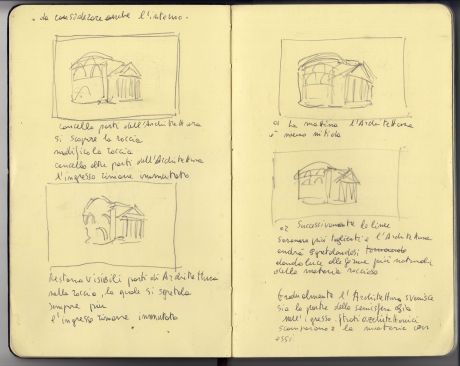 . da considerare anche l'interno.
cancello parti dell'Architettura
si scopre la roccia
modifico la roccia
cancello altre parti dell'Architettura
l'ingresso rimane immutato
Restano visibili parti di Architettura
nella roccia, la quale si sgretola
sempre più
l'ingresso rimane immutato
01 La mattina l'Architettura
è meno nitida
02 Successivamente le linee
saranno più taglienti e l'Architettura
andrà sgretolandosi
dando luce alle forme più naturali
della materia rocciosa
Gradualmente l'Architettura svanisce
sia la parte della semisfera sia
nell'ingresso. Strati architettonici
scompaiono e la materia con
essi